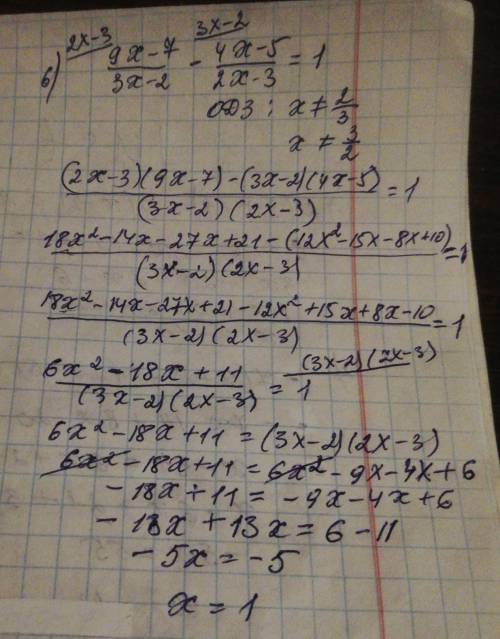 2x-3 3x-2
б) (9x-7)/(3x-2) - (4x-5)/(2x-3) = 1
ОДЗ: x ≠ 2/3
x ≠ 3/2
((2x-3)(9x-7)-(3x-2)(4x-5))/((3x-2)(2x-3)) = 1
(18x²-14x-27x+21-(12x²-15x-8x+10))/((3x-2)(2x-3)) = 1
(18x²-14x-27x+21-12x²+15x+8x-10)/((3x-2)(2x-3)) = 1
(3x-2)(2x-3)
(6x²-18x+11)/((3x-2)(2x-3)) = 1
6x²-18x+11 = (3x-2)(2x-3)
6x²-18x+11 = 6x²-9x-4x+6
-18x+11 = -9x-4x+6
-18x+13x = 6-11
-5x = -5
x = 1